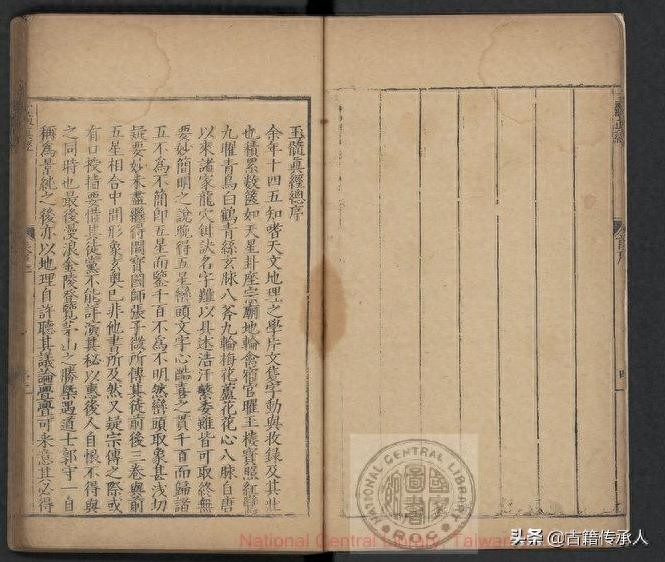 玉髓真經總序
余年十四五知嗜天文地理之學片文隻字動與收錄及其壯
也積累數篋如天星卦座宗廟地輪禽宿官曜玉棲寶照紅鸞
九曜青鳥白鶴青絲玄脉八斧九輪梅花蘆花花心八脉自唐
以來諸家龍穴訣名字難以具述浩汗繁委雖皆可取終無
要妙簡明之說晚得五星巒頭文字心酷喜之貫千百而歸諸
五不為不簡即五星而鑒千百不為不明然巒頭取象甚淺切
疑要妙未盡繼得國寶國師張子微所傳其徒前後三卷與前
五星相合中間形象玄奥已非他書所及然又疑宗傳之際或
有口授指要惜其徒黨不能詳演其秘以惠後人自恨不得與
之同時也最後漫浪金陵登覽茅山之勝槩遇道士郭守一自
稱為景純之後亦以地理自許聽其議論亹亹可采意其必得
NATIONAL CENTRAL LIBRARY
國家圖書館
ROC
National Central Library, Taiwan
头条 @古籍传承人